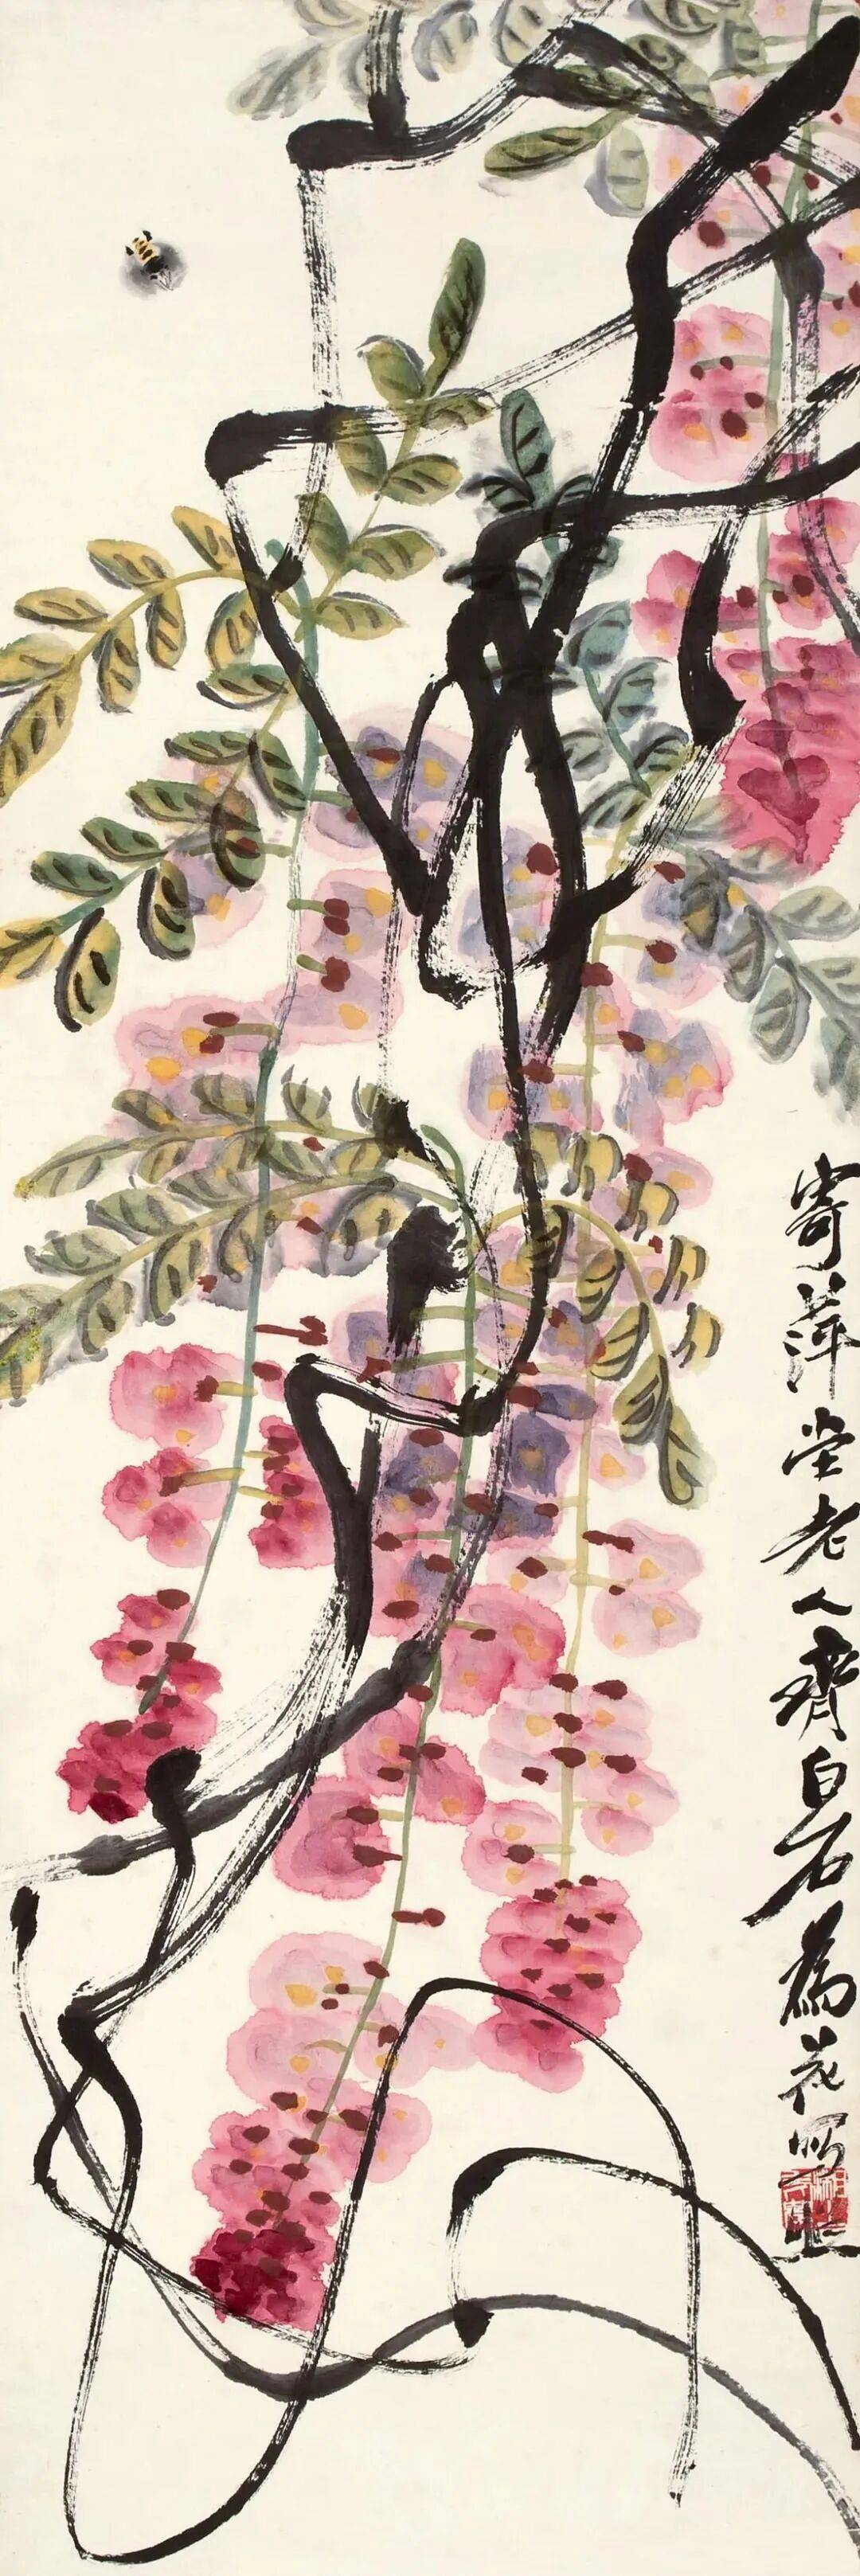 寄萍堂老人齊白石為花寫照